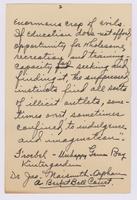 2
enormous crop of evils.
If education does not afford
opportunity for wholesome
recreation and training
capacity for seeking and
finding it, the suppressed
instincts find all sorts
of illicit outlets, some-
times overt sometimes
confined to indulgence
and imagination."
Froebel - Unhappy
Kintergarden
Dr. Geo.
A